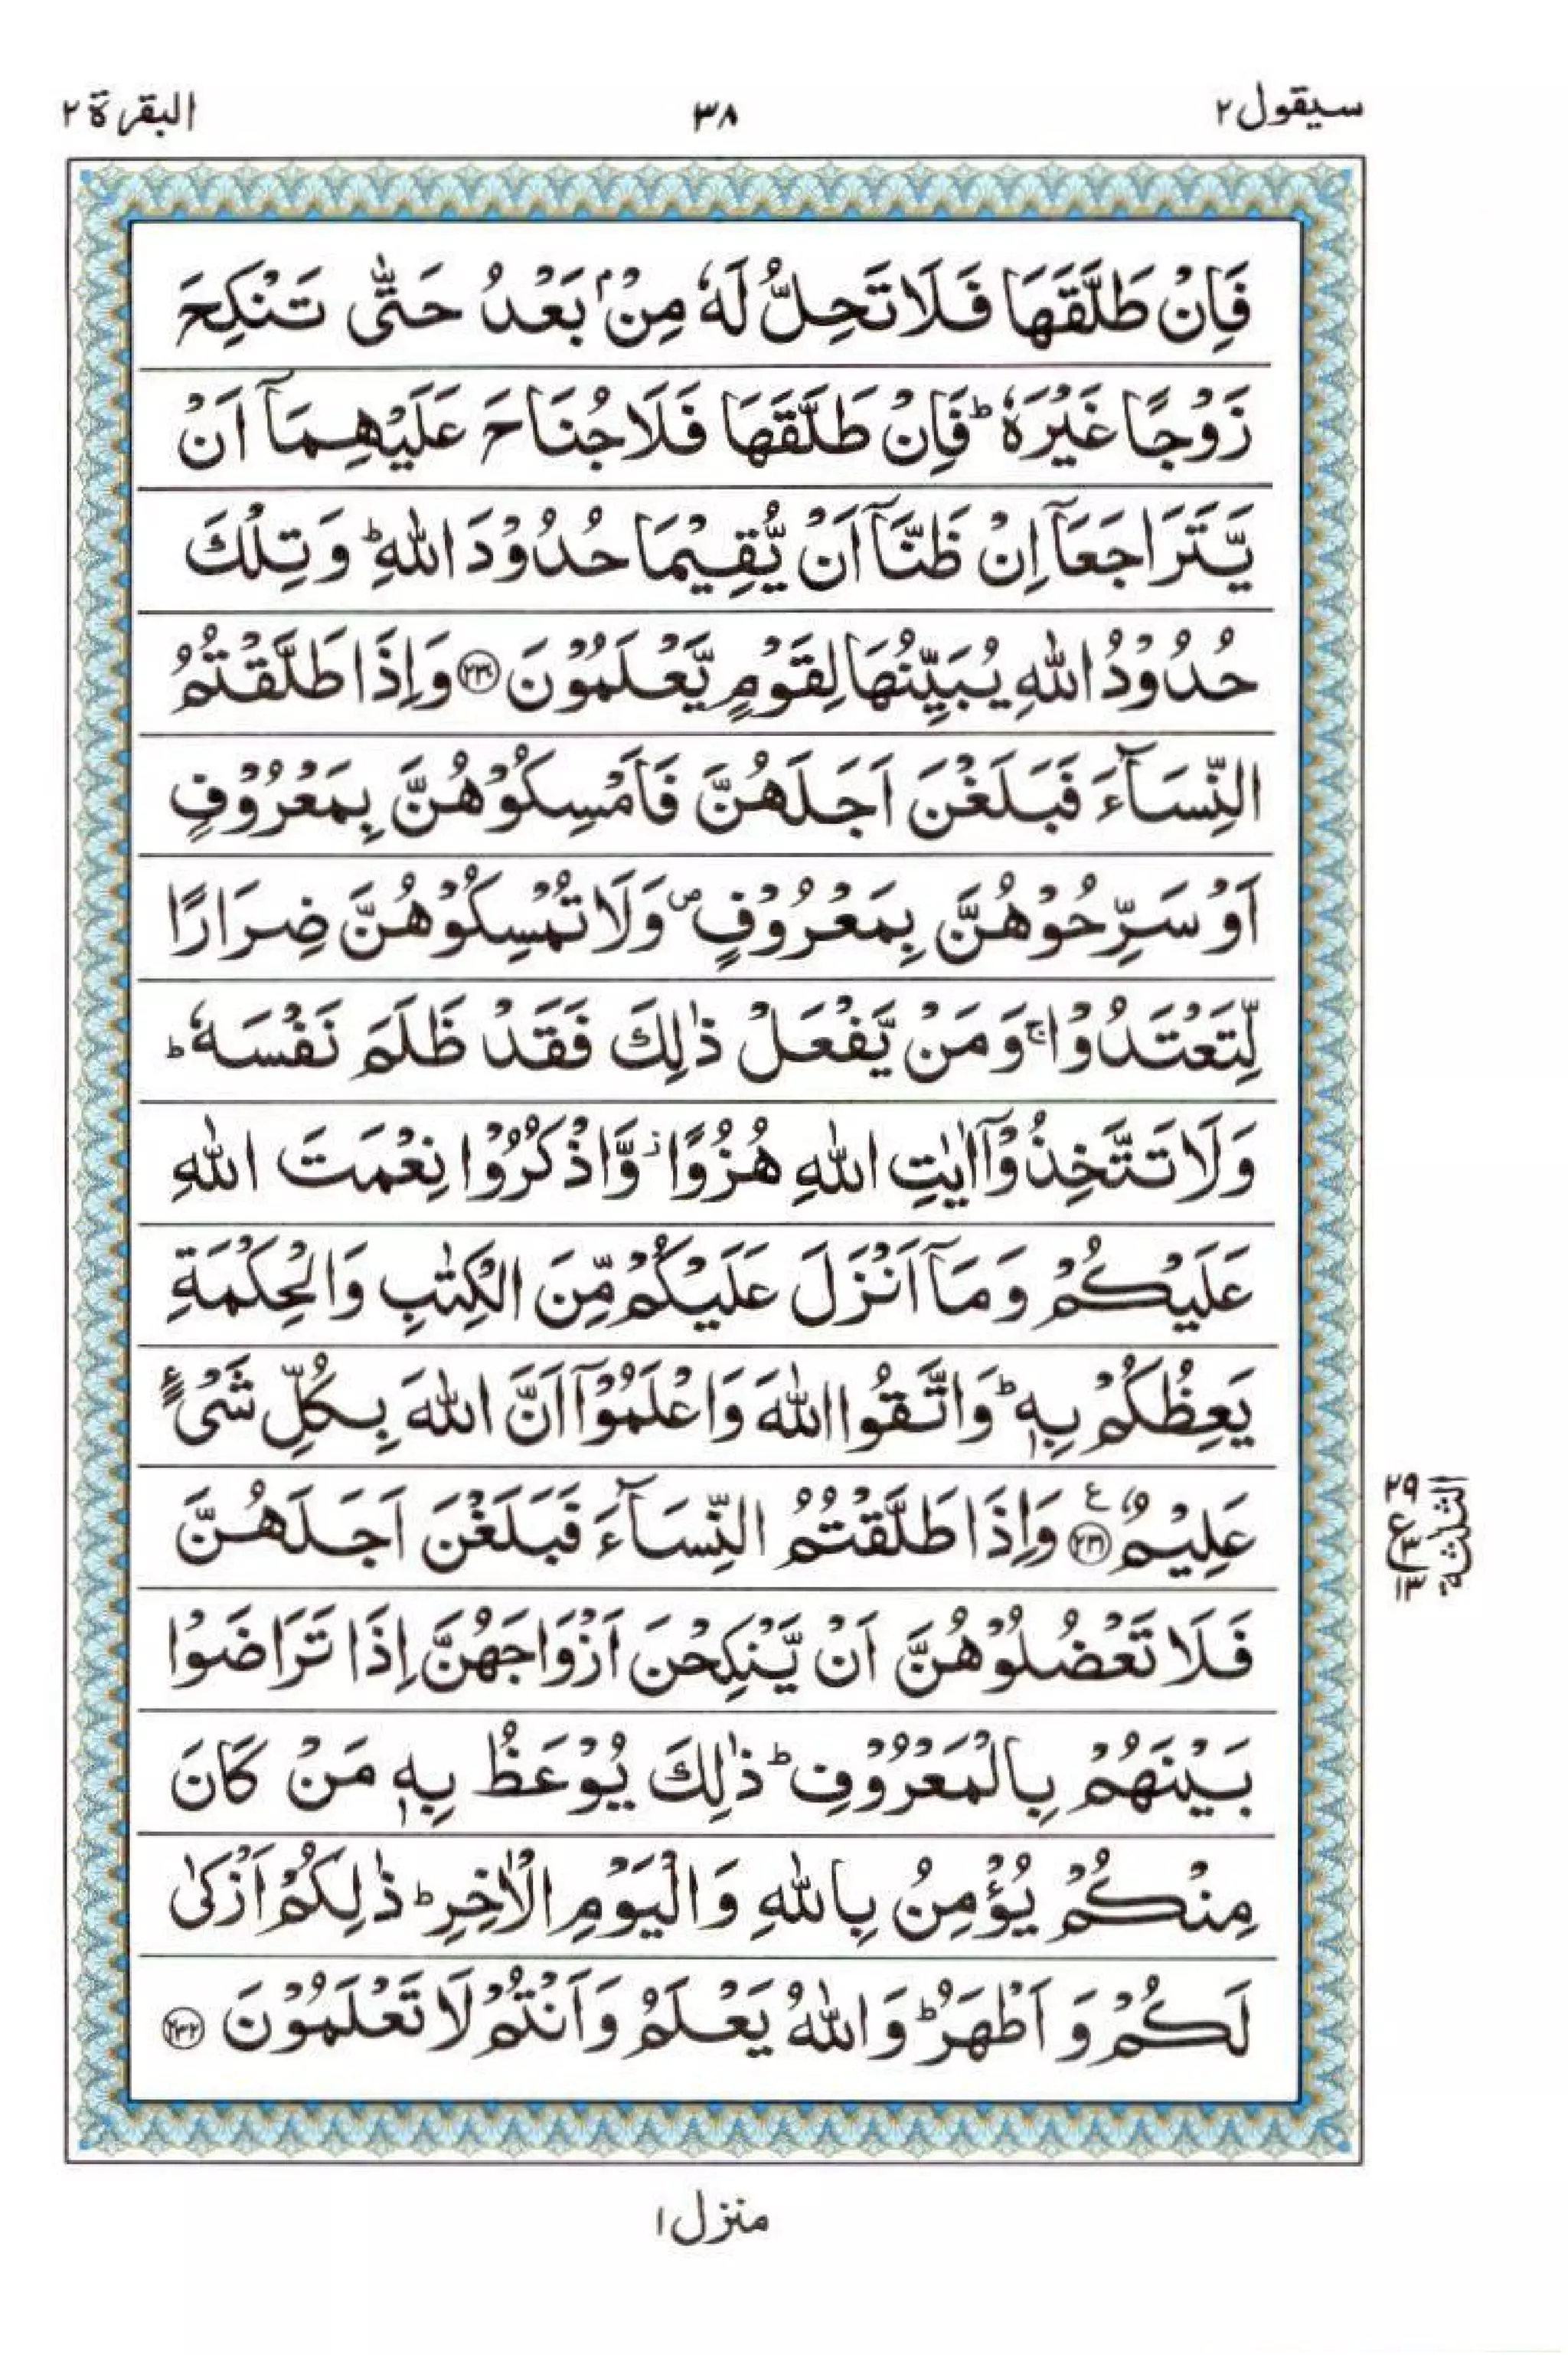 سيقول ٢
٣٨
البقرة ٢
فَاِنْ طَلَّقَهَا فَلَا تَحِلُّ لَهٗ مِنْۢ بَعْدُ حَتّٰى تَنْكِحَ
زَوْجًا غَيْرَهٗ ؕ فَاِنْ طَلَّقَهَا فَلَا جُنَاحَ عَلَيْهِمَاۤ اَنْ
يَّتَرَاجَعَاۤ اِنْ ظَنَّاۤ اَنْ يُّقِيْمَا حُدُوْدَ اللّٰهِ ؕ وَتِلْكَ
حُدُوْدُ اللّٰهِ يُبَيِّنُهَا لِقَوْمٍ يَّعْلَمُوْنَ ﴿۲۳۰﴾ وَاِذَا طَلَّقْتُمُ
النِّسَآءَ فَبَلَغْنَ اَجَلَهُنَّ فَاَمْسِكُوْهُنَّ بِمَعْرُوْفٍ
اَوْ سَرِّحُوْهُنَّ بِمَعْرُوْفٍ ۪ وَلَا تُمْسِكُوْهُنَّ ضِرَارًا
لِّتَعْتَدُوْا ۚ وَمَنْ يَّفْعَلْ ذٰلِكَ فَقَدْ ظَلَمَ نَفْسَهٗ ؕ
وَلَا تَتَّخِذُوْۤا اٰيٰتِ اللّٰهِ هُزُوًا ؗ وَّاذْكُرُوْا نِعْمَتَ اللّٰهِ
عَلَيْكُمْ وَمَاۤ اَنْزَلَ عَلَيْكُمْ مِّنَ الْكِتٰبِ وَالْحِكْمَةِ
يَعِظُكُمْ بِهٖ ؕ وَاتَّقُوا اللّٰهَ وَاعْلَمُوْۤا اَنَّ اللّٰهَ بِكُلِّ شَىْءٍ
عَلِيْمٌ ﴿۲۳۱﴾ ع وَاِذَا طَلَّقْتُمُ النِّسَآءَ فَبَلَغْنَ اَجَلَهُنَّ
فَلَا تَعْضُلُوْهُنَّ اَنْ يَّنْكِحْنَ اَزْوَاجَهُنَّ اِذَا تَرَاضَوْا
بَيْنَهُمْ بِالْمَعْرُوْفِ ؕ ذٰلِكَ يُوْعَظُ بِهٖ مَنْ كَانَ
مِنْكُمْ يُؤْمِنُ بِاللّٰهِ وَالْيَوْمِ الْاٰخِرِ ؕ ذٰلِكُمْ اَزْكٰى
لَكُمْ وَاَطْهَرُ ؕ وَاللّٰهُ يَعْلَمُ وَاَنْتُمْ لَا تَعْلَمُوْنَ ﴿۲۳۲﴾
الثلثة
٢٩
ع ٣
١٣
منزل ١